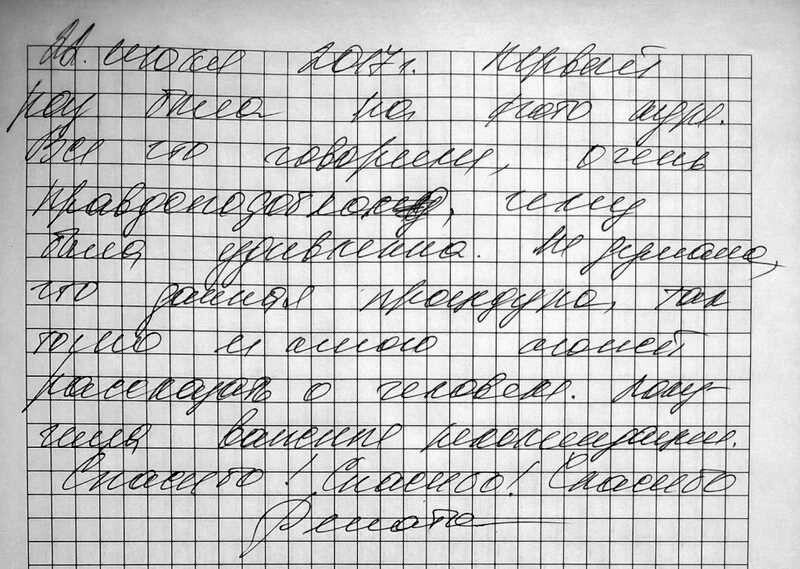 21. июля 2017 г. Первый
раз была на фото ауре.
Все что говорили, очень
правдоподобно, чему
была удивленна. Не думала,
что данная процедура, так
точно и много может
рассказать о человеке. Полу-
чила важные рекомендации.
Спасибо! Спасибо! Спасибо
Рената